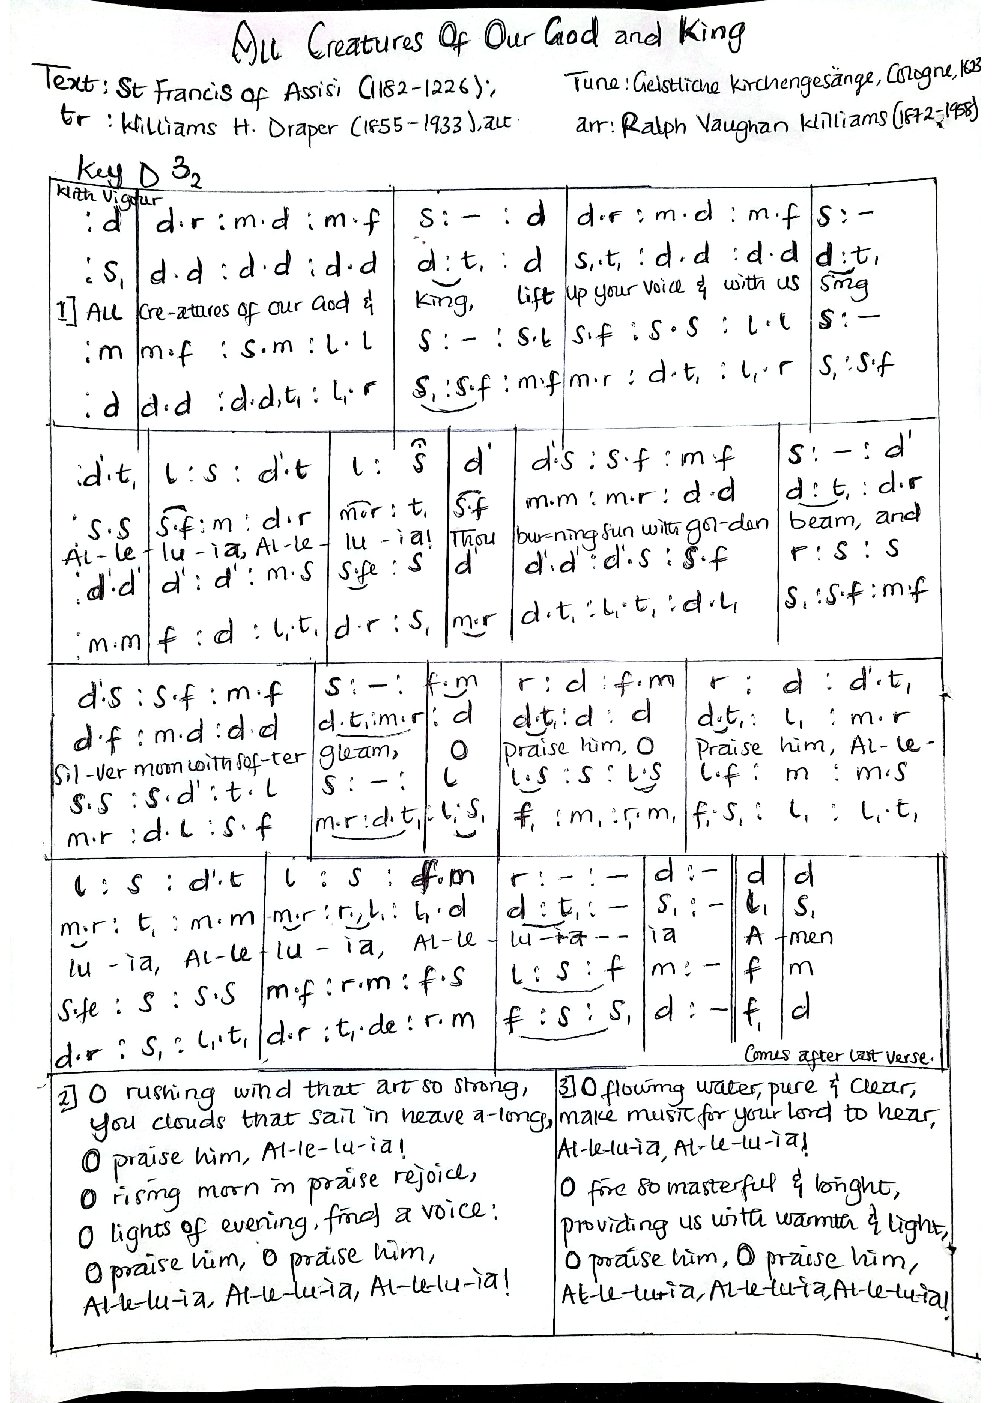 All Creatures Of Our God and King
Text: St Francis of Assisi (1182-1226);
Tune: Geistliche Kirchengesänge, Cologne, 1623
tr: Williams H. Draper (1855-1933), alt
arr: Ralph Vaughan Williams (1872-1958)
Key D 3 2
With Vigour
:d | d.r : m.d : m.f | s : - : d | d.r : m.d : m.f | s : -
:s₁ | d.d : d.d : d.d | d : t₁ : d | s₁.t₁ : d.d : d.d | d : t₁
1] All | Cre-atures of our God & | King, lift | up your voice & with us | sing
:m | m.f : s.m : l.l | s : - : s.l | s.f : s.s : l.l | s : -
:d | d.d : d.d,t₁ : l₁.r | s₁ : s.f : m.f | m.r : d.t₁ : l₁.r | s₁ : s.f
:d'.t₁ | l : s : d'.t | l : s | d' | d'.s : s.f : m.f | s : - : d'
:s.s | s.f : m : d.r | m.r : t₁ | s.f | m.m : m.r : d.d | d : t₁ : d.r
Al-le- | lu-ia, Al-le- | lu-ia! | Thou | bur-ning sun with gol-den | beam, and
:d'.d' | d' : d' : m.s | s.fe : s | d' | d'.d' : d'.s : s.f | r : s : s
:m.m | f : d : l₁.t₁ | d.r : s₁ | m.r | d.t₁ : l₁.t₁ : d.l₁ | s₁ : s.f : m.f
d'.s : s.f : m.f | s : - : | f.m | r : d : f.m | r : d : d'.t₁
d.f : m.d : d.d | d.t₁ : m.r | : d | d.t₁ : d : d | d.t₁ : l₁ : m.r
Sil-ver moon with sof-ter | gleam, | O | praise him, O | Praise him, Al-le-
s.s : s.d' : t.l | s : - : | l | l.s : s : l.s | l.f : m : m.s
m.r : d.l : s.f | m.r : d.t₁ | : l₁.s₁ | f₁ : m₁ : r₁.m₁ | f₁.s₁ : l₁ : l₁.t₁
l : s : d'.t | l : s : f.m | r : - : - | d : - | d | d
m.r : t₁ : m.m | m.r : r₁.l₁ : l₁.d | d : t₁ : - | s₁ : - | l₁ | s₁
lu-ia, Al-le- | lu-ia, Al-le- | lu-ia-- | ia | A- | men
s.fe : s : s.s | m.f : r.m : f.s | l : s : f | m : - | f | m
d.r : s₁ : l₁.t₁ | d.r : t₁.de : r.m | f : s : s₁ | d : - | f₁ | d
Comes after last verse.
2] O rushing wind that art so strong,
you clouds that sail in heave a-long,
O praise him, Al-le-lu-ia!
O rising morn in praise rejoice,
O lights of evening, find a voice:
O praise him, O praise him,
Al-le-lu-ia, Al-le-lu-ia, Al-le-lu-ia!
3] O flowing water, pure & clear,
make music for your lord to hear,
Al-le-lu-ia, Al-le-lu-ia!
O fire so masterful & bright,
providing us with warmth & light,
O praise him, O praise him,
Al-le-lu-ia, Al-le-lu-ia, Al-le-lu-ia!